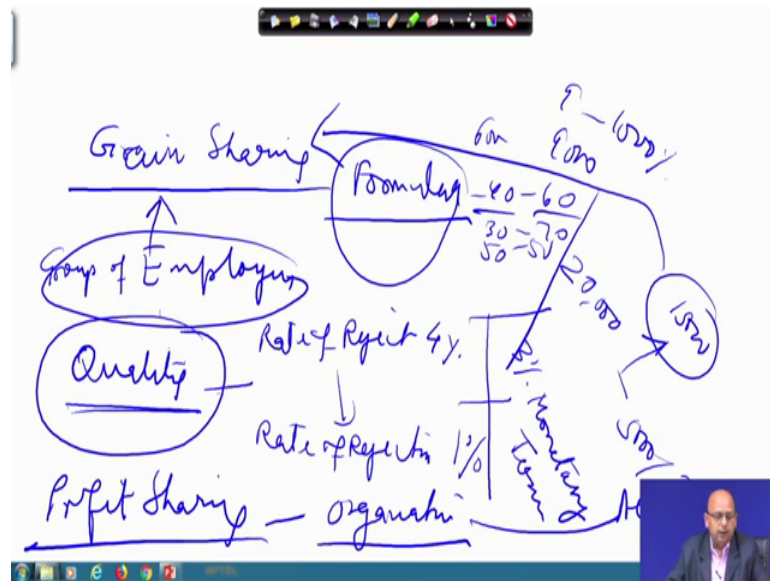 Gain Sharing
Formulas
600
9000
1000%
40 - 60
30 - 70
50 - 50
20,000
Group of Employees
Quality
Rate of Reject 4%
Rate of Rejectin 1%
Monetary
Term
Profit Sharing - Organatin